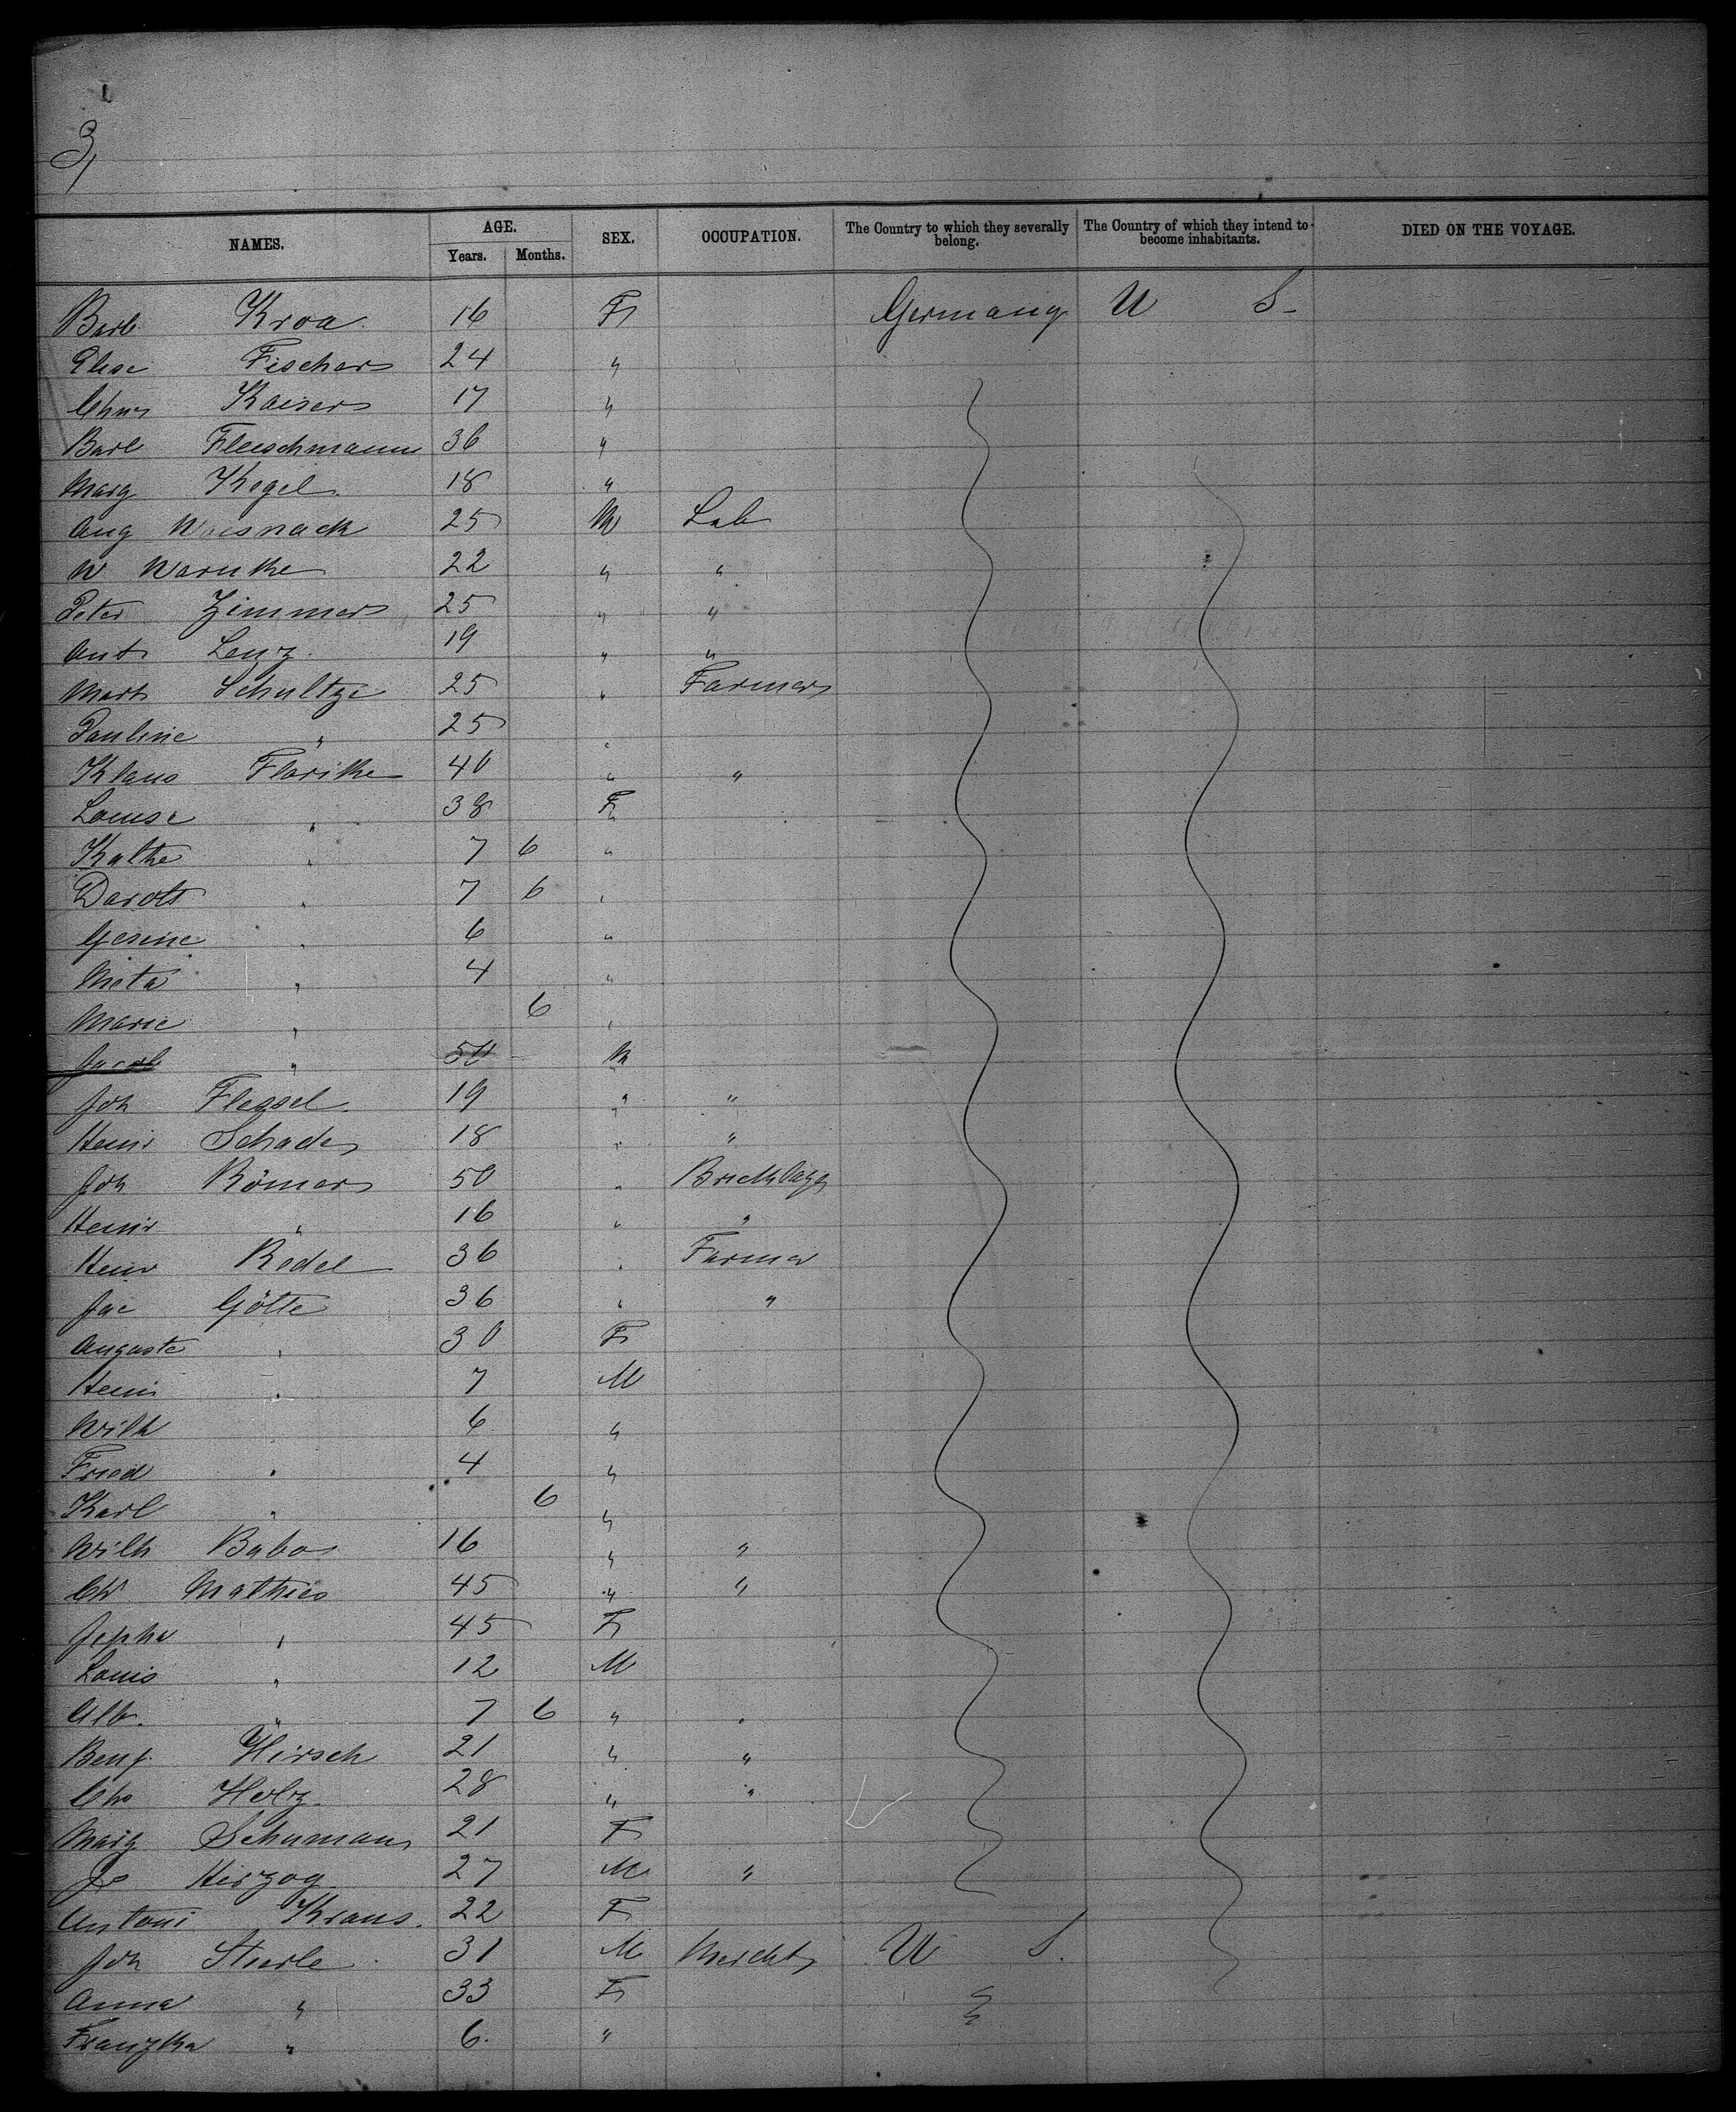 3,
NAMES. AGE. SEX. OCCUPATION. The Country to which they severally belong. The Country of which they intend to become inhabitants. DIED ON THE VOYAGE.
Years. Months.
Barb Kroa 16 F Germany U S-
Elise Fischer 24 "
Chr Kaiser 17 "
Barb Fleischmann 36 "
Marg Kegel 18 "
Aug Woisnack 25 M Lab
W Warnthe 22 " "
Peter Zimmer 25 " "
Ant Lenz 19 " "
Mart Schultze 25 " Farmer
Pauline " 25 "
Klaus Flarithe 40 " "
Louise " 38 F
Kathe " 7 6 "
Doroth " 7 6 "
Gesine " 6 "
Meta " 4 "
Marie " 6 "
Jacob " 50 M
Joh Flessel 19 " "
Heinr Schade 18 " "
Joh Römer 50 " Bricklayg
Heinr " 16 " "
Heinr Redel 36 " Farmer
Jac Götte 36 " "
Auguste " 30 F
Heinr " 7 M
Wilh " 6 "
Fried " 4 "
Karl " 6 "
Wilh Babo 16 " "
Ch Mathies 45 " "
Jepha " 45 F
Louis " 12 M
Alb. " 7 6 " "
Benj. Hirsch 21 " "
Chr Holz 28 " "
Marg Schuman 21 F
Jo Herzog 27 M "
Antoni Kraus. 22 F
Joh Stierle 31 M Mercht U S.
Anna " 33 F "
Franzka " 6. "